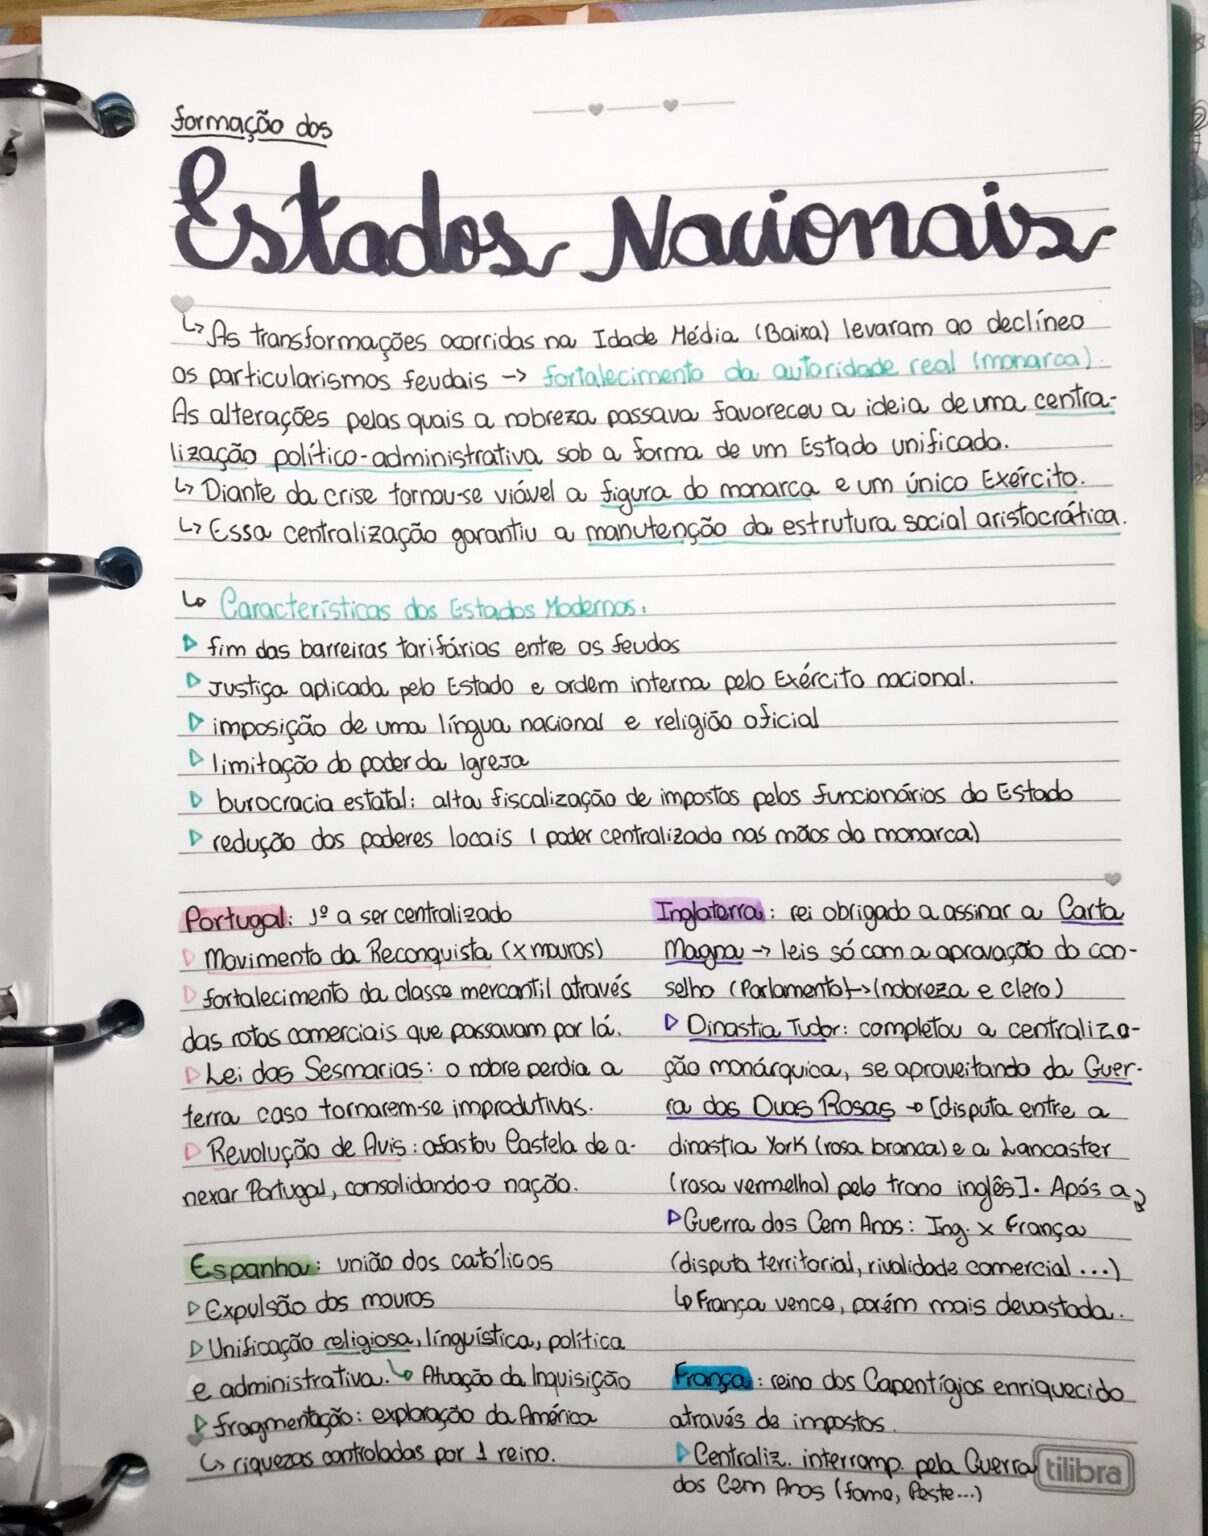 formação dos
Estados Nacionais
↳ As transformações ocorridas na Idade Média (Baixa) levaram ao declíneo
os particularismos feudais -> fortalecimento da autoridade real (monarca).
As alterações pelas quais a nobreza passava favoreceu a ideia de uma centra-
lização político-administrativa sob a forma de um Estado unificado.
↳ Diante da crise tornou-se viável a figura do monarca e um único Exército.
↳ Essa centralização garantiu a manutenção da estrutura social aristocrática.
↳ Características dos Estados Modernos.
▷ fim das barreiras tarifárias entre os feudos
▷ Justiça aplicada pelo Estado e ordem interna pelo Exército nacional.
▷ imposição de uma língua nacional e religião oficial
▷ limitação do poder da Igreja
▷ burocracia estatal: alta fiscalização de impostos pelos funcionários do Estado
▷ redução dos poderes locais (poder centralizado nas mãos do monarca)
Portugal: 1º a ser centralizado
▷ Movimento da Reconquista (x mouros)
▷ fortalecimento da classe mercantil através
das rotas comerciais que passavam por lá.
▷ Lei das Sesmarias: o nobre perdia a
terra caso tornarem-se improdutivas.
▷ Revolução de Avis: afastou Castela de a-
nexar Portugal, consolidando-o nação.
Espanha: união dos católicos
▷ Expulsão dos mouros
▷ Unificação religiosa, linguística, política
e administrativa. ↳ Atuação da Inquisição
▷ fragmentação: exploração da América
↳ riquezas controladas por 1 reino.
Inglaterra: rei obrigado a assinar a Carta
Magna -> leis só com a aprovação do con-
selho (Parlamento) -> (nobreza e clero)
▷ Dinastia Tudor: completou a centraliza-
ção monárquica, se aproveitando da Guer-
ra das Duas Rosas -> [disputa entre a
dinastia York (rosa branca) e a Lancaster
(rosa vermelha) pelo trono inglês]. Após a
▷ Guerra dos Cem Anos: Ing. x França
(disputa territorial, rivalidade comercial ...)
↳ França vence, porém mais devastada.
França: reino dos Capentígios enriquecido
através de impostos.
▷ Centraliz. interromp. pela Guerra
dos Cem Anos (fome, Peste...)
tilibra